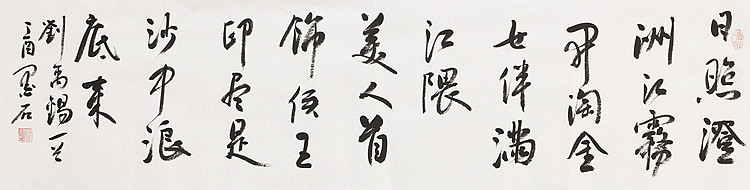 日照澄
洲江霧
開淘金
女伴滿
江隈
美人首
飾侯王
印尽是
沙中浪
底来
劉禹錫一首
丁酉墨石